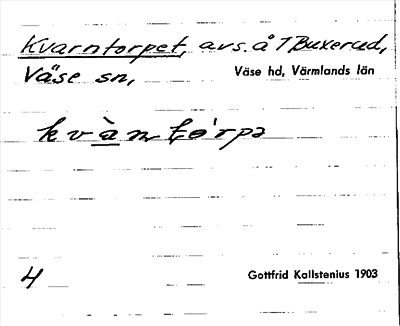 Kvarntorpet, avs. å T Buxerud,
Väse sn,
Väse hd, Värmlands län
kvàntó̤rpə
4
Gottfrid Kallstenius 1903